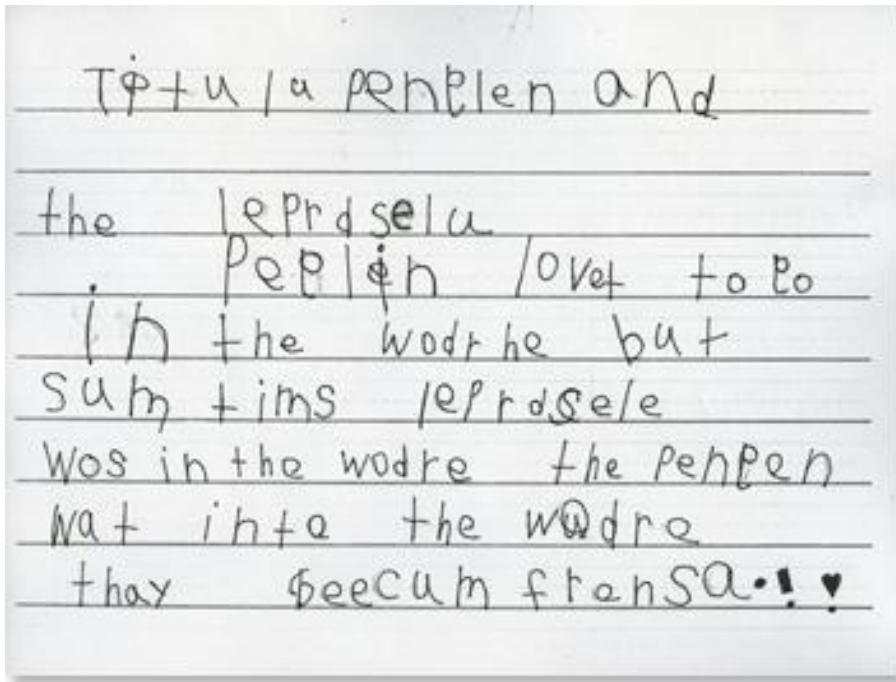 Titula penplen and
the leprdselu
Peplen lovet to po
in the wodrhe but
sum tims leprdsele
wos in the wodre the penpen
wat inte the wodre
thay beecum frensa.!